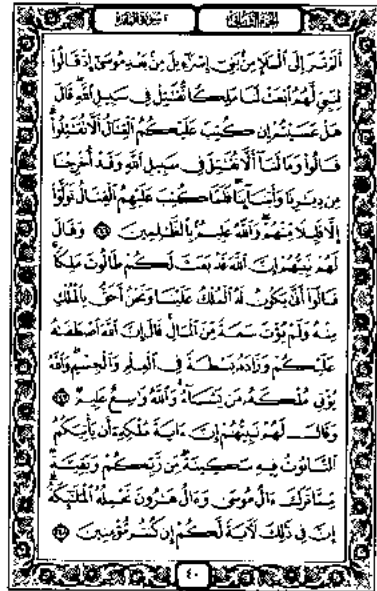 الجزء الثاني
سورة البقرة
أَلَمْ تَرَ إِلَى ٱلْمَلَإِ مِنۢ بَنِىٓ إِسْرَٰٓءِيلَ مِنۢ بَعْدِ مُوسَىٰٓ إِذْ قَالُوا۟
لِنَبِىٍّ لَّهُمُ ٱبْعَثْ لَنَا مَلِكًا نُّقَٰتِلْ فِى سَبِيلِ ٱللَّهِ قَالَ
هَلْ عَسَيْتُمْ إِن كُتِبَ عَلَيْكُمُ ٱلْقِتَالُ أَلَّا تُقَٰتِلُوا۟
قَالُوا۟ وَمَا لَنَآ أَلَّا نُقَٰتِلَ فِى سَبِيلِ ٱللَّهِ وَقَدْ أُخْرِجْنَا
مِن دِيَٰرِنَا وَأَبْنَآئِنَا فَلَمَّا كُتِبَ عَلَيْهِمُ ٱلْقِتَالُ تَوَلَّوْا۟
إِلَّا قَلِيلًا مِّنْهُمْ وَٱللَّهُ عَلِيمٌۢ بِٱلظَّٰلِمِينَ ٢٤٦ وَقَالَ
لَهُمْ نَبِيُّهُمْ إِنَّ ٱللَّهَ قَدْ بَعَثَ لَكُمْ طَالُوتَ مَلِكًا
قَالُوٓا۟ أَنَّىٰ يَكُونُ لَهُ ٱلْمُلْكُ عَلَيْنَا وَنَحْنُ أَحَقُّ بِٱلْمُلْكِ
مِنْهُ وَلَمْ يُؤْتَ سَعَةً مِّنَ ٱلْمَالِ قَالَ إِنَّ ٱللَّهَ ٱصْطَفَىٰهُ
عَلَيْكُمْ وَزَادَهُۥ بَسْطَةً فِى ٱلْعِلْمِ وَٱلْجِسْمِ وَٱللَّهُ
يُؤْتِى مُلْكَهُۥ مَن يَشَآءُ وَٱللَّهُ وَٰسِعٌ عَلِيمٌ ٢٤٧
وَقَالَ لَهُمْ نَبِيُّهُمْ إِنَّ ءَايَةَ مُلْكِهِۦٓ أَن يَأْتِيَكُمُ
ٱلتَّابُوتُ فِيهِ سَكِينَةٌ مِّن رَّبِّكُمْ وَبَقِيَّةٌ
مِّمَّا تَرَكَ ءَالُ مُوسَىٰ وَءَالُ هَٰرُونَ تَحْمِلُهُ ٱلْمَلَٰٓئِكَةُ
إِنَّ فِى ذَٰلِكَ لَءَايَةً لَّكُمْ إِن كُنتُم مُّؤْمِنِينَ ٢٤٨
٤٠